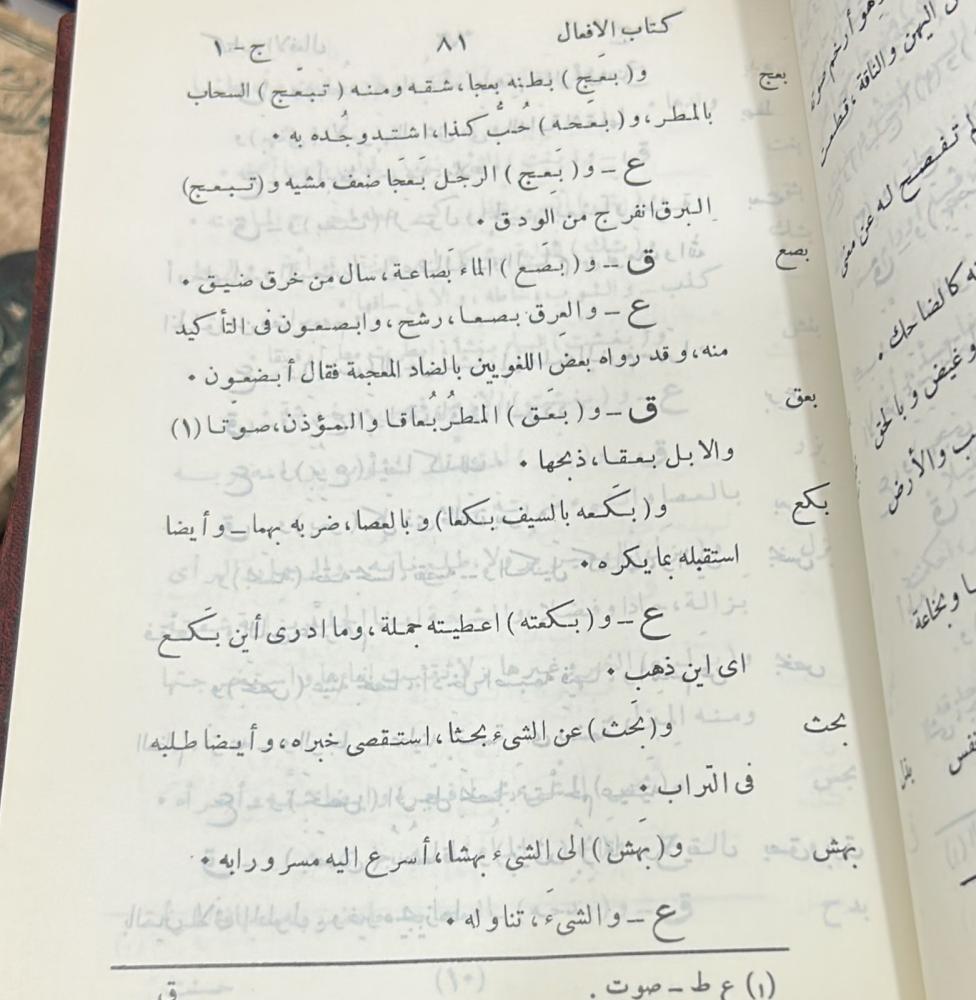 كتاب الافعال ٨١ ج-١
بعج و (بَعَج) بطنه بعجا، شقه ومنه (تبعج) السحاب
بالمطر، و (بَعَجه) حُبُّ كذا، اشتد وجُده به ٠
ع - و (بَعِج) الرجل بَعَجا ضعف مشيه و (تبعج)
البرق انفرج من الودق ٠
بصع ق - و (بَصَع) الماء بَصاعة، سال من خرق ضيق ٠
ع - والعِرق بصعا، رشح، وابصعون فى التأكيد
منه، وقد رواه بعض اللغويين بالضاد المعجمة فقال أبضعون ٠
بعق ق - و (بعَق) المطرُ بُعاقا والمؤذن، صوتا (١)
والابل بعقا، ذبحها ٠
بكع و (بكَعه بالسيف بكعا) وبالعصا، ضربه بهما - وأيضا
استقبله بما يكره ٠
ع - و (بكعته) اعطيته جملة، وما ادرى أين بَكَع
اى اين ذهب ٠
بحث و (بحَث) عن الشىء بحثا، استقصى خبره، وأيضا طلبه
فى التراب ٠
بهش و (بهَش) الى الشىء بهشا، أسرع اليه مسرورا به ٠
ع - والشىءَ، تناوله ٠
(١) ع ط - صوت .
ق
تفصح له عن معنى
كالضاحك ٠
وغيض وبالحق
والأرض